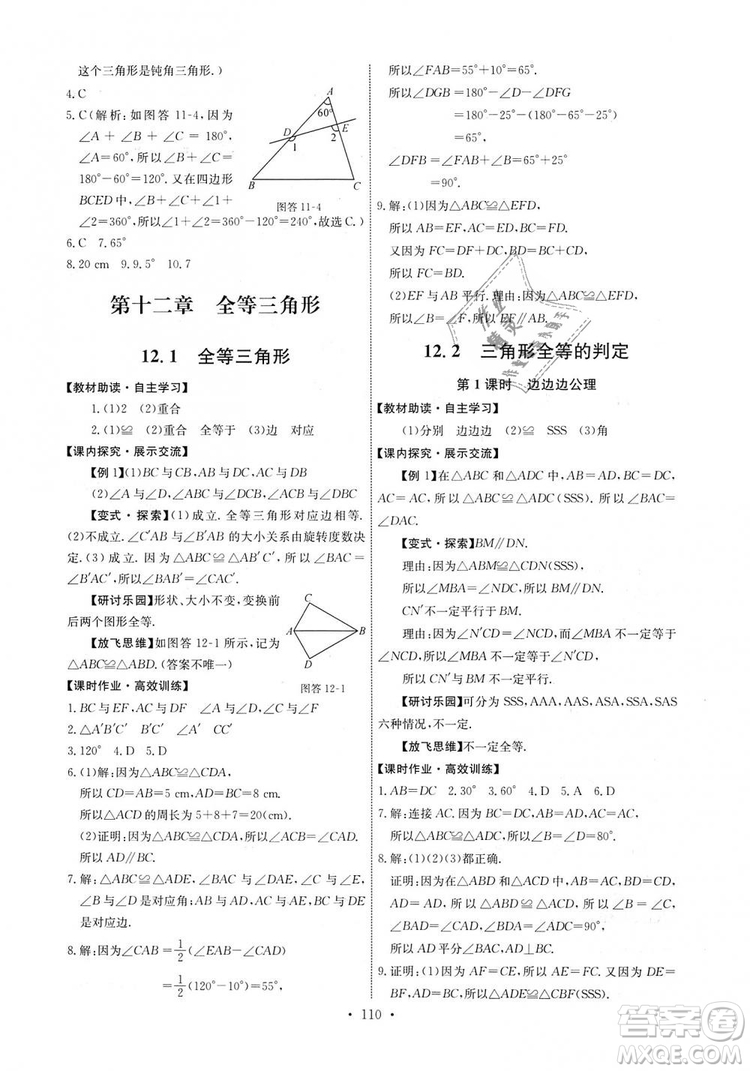 这个三角形是钝角三角形.)
4.C
5.C(解析:如图答11-4,因为
∠A+∠B+∠C=180°,
∠A=60°,所以∠B+∠C=
180°-60°=120°.又在四边形
BCED中,∠B+∠C+∠1+
∠2=360°,所以∠1+∠2=360°-120°=240°,故选C.)
A
60°
D
E
1
2
B
C
图答11-4
6.C 7.65°
8.20 cm 9.9.5° 10.7
第十二章 全等三角形
12.1 全等三角形
【教材助读·自主学习】
1.(1)2 (2)重合
2.(1)≌ 重合 全等于 (3)边 对应
【课内探究·展示交流】
【例1】(1)BC与CB,AB与DC,AC与DB
(2)∠A与∠D,∠ABC与∠DCB,∠ACB与∠DBC
【变式·探索】(1)成立.全等三角形对应边相等.
(2)不成立.∠B′与∠AB′B的大小关系由旋转度数决
定.(3)成立.因为△ABC≌△AB′C′,所以∠BAC=
∠B′AC′,所以∠BAB′=∠CAC′.
【研讨乐园】形状、大小不变,变换前
后两个图形全等.
【放飞思维】如图答12-1所示,记为
△ABC≌△ABD.(答案不唯一)
C
A
B
D
图答12-1
【课时作业·高效训练】
1.BC与EF,AC与DF,∠A与∠D,∠C与∠F
2.△A′B′C′ B′C′ ∠A′ CC′
3.120° 4.D 5.D
6.(1)解:因为△ABC≌△CDA,
所以CD=AB=5 cm,AD=BC=8 cm,
所以△ACD的周长为5+8+7=20(cm).
(2)证明:因为△ABC≌△CDA,所以∠ACB=∠CAD.
所以AD∥BC.
7.解:△ABC≌△ADE,∠BAC与∠DAE、∠C与∠E、
∠B与∠D是对应角,AC与AE、AB与AD、BC与DE
是对应边.
8.解:因为∠CAB=1/2(∠EAB-∠CAD)
=1/2(120°-10°)=55°,
所以∠FAB=55°+10°=65°.
所以∠DGB=180°-∠D-∠DFG
=180°-25°-(180°-∠DFB)
=180°-25°-(∠FAB+∠B)
=180°-25°-(65°+25°)=65°.
∠DFB=∠FAB+∠B=65°+25°
=90°.
9.解:(1)因为△ABC≌△EFD,
所以AB=EF,AC=ED,BC=FD.
又因为FC=FD-CD,BD=BC-CD,
所以FC=BD.
(2)EF与AB平行.理由:因为△ABC≌△EFD,
所以∠B=∠F,所以EF∥AB.
12.2 三角形全等的判定
第1课时 边边边公理
【教材助读·自主学习】
(1)分别 边边边 (2)≌ SSS (3)角
【课内探究·展示交流】
【例1】在△ABC和△ADC中,AB=AD,BC=DC,
AC=AC,所以△ABC≌△ADC(SSS).所以∠BAC=
∠DAC.
【变式·探索】BM∥DN.
理由:因为△ABM≌△CDN(SSS),
所以∠MBA=∠NDC,所以BM∥DN.
CN′不一定平行于BM.
理由:因为∠N′CD不一定等于∠NDC,
∠NDC=∠MBA,所以∠N′CD不一定等于∠MBA,
所以CN′与BM不一定平行.
【研讨乐园】可分为SSS,AAA,AAS,ASA,SSA,SAS
六种情况,不一定.
【放飞思维】不一定全等.
【课时作业·高效训练】
1.AB=DC 2.30° 3.60° 4.D 5.A 6.D
7.解:连接AC.因为BC=DC,AB=AD,AC=AC,
所以△ABC≌△ADC,所以∠B=∠D=80°.
8.解:(1)(2)(3)都正确.
证明:因为△ABD和△ADC中,AB=AC,AD=AD,
BD=CD,所以△ABD≌△ACD(SSS).所以∠B=∠C,
∠BAD=∠CAD,∠BDA=∠CDA=90°,
所以AD平分∠BAC,AD⊥BC.
9.证明:(1)因为AF=CE,所以AE=CF.因为AD=BC,
DE=BF,所以△ADE≌△CBF(SSS),所以∠A=∠C.
110
答案圈
MXQE.COM